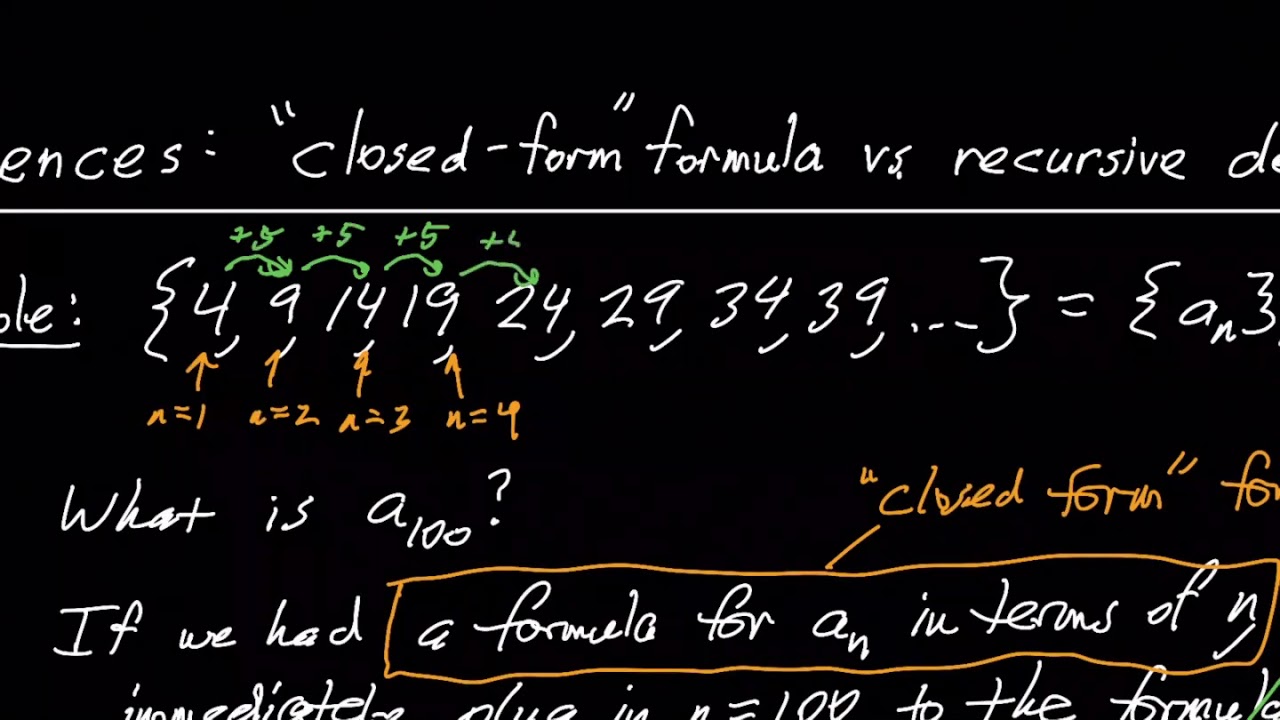 ences: "closed-form" formula vs. recursive de
+5 +5 +5 +
ple: {4, 9, 14, 19, 24, 29, 34, 39, ...} = {a_n}
n=1 n=2 n=3 n=4
What is a_100?
"closed form" fo
If we had a formula for a_n in terms of n,
immediately plug in n=100 to the formula